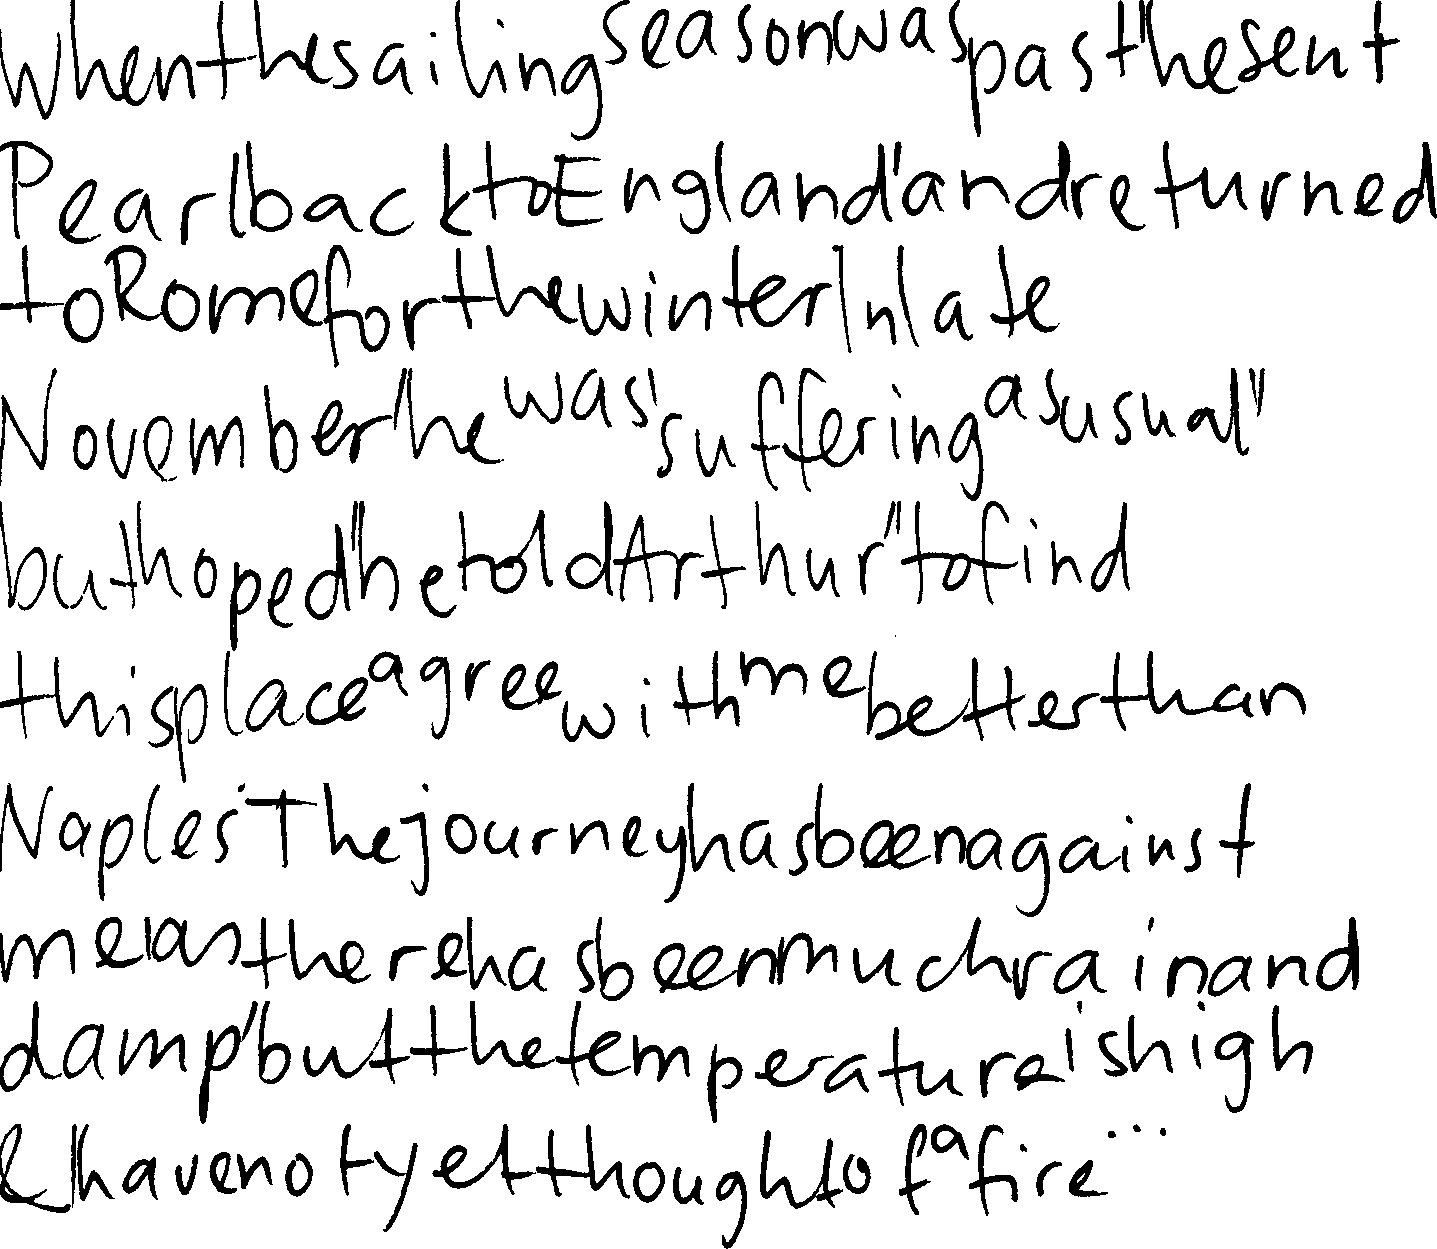 When the sailing season was past he sent
Pearl back to England' and returned
to Rome for the winter In late
November "he was 'suffering as usual"
but hoped "he told Arthur "to find
this place agree with me better than
Naples' The journey has been against
me as there has been much rain and
damp' but the temperature is high
& I have not yet thought of a fire...